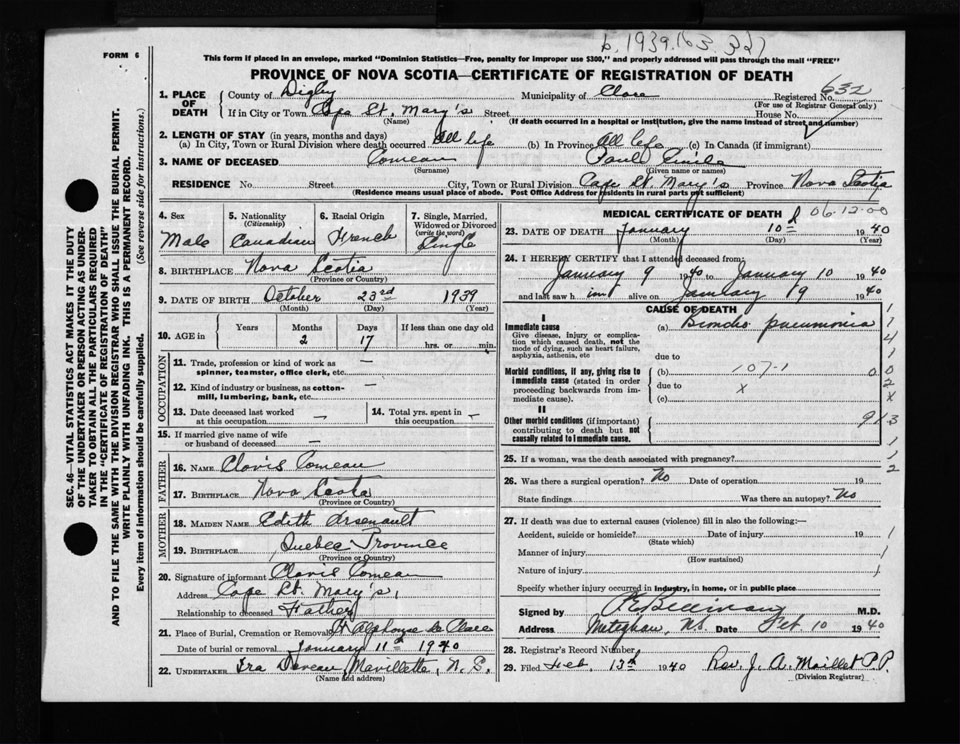 b. 1939.(63.327)
FORM 6
This form if placed in an envelope, marked "Dominion Statistics—Free, penalty for improper use $300," and properly addressed will pass through the mail "FREE"
PROVINCE OF NOVA SCOTIA—CERTIFICATE OF REGISTRATION OF DEATH
1. PLACE OF DEATH County of Digby Municipality of Clare Registered No. 632
(For use of Registrar General only)
If in City or Town Cape St. Mary's Street House No.
(Name) (If death occurred in a hospital or institution, give the name instead of street and number)
2. LENGTH OF STAY (in years, months and days)
(a) In City, Town or Rural Division where death occurred All life (b) In Province All life (c) In Canada (if immigrant)
3. NAME OF DECEASED Comeau Paul
(Surname) (Given name or names)
RESIDENCE No. Street City, Town or Rural Division Cape St. Mary's Province Nova Scotia
(Residence means usual place of abode. Post Office Address for residents in rural parts not sufficient)
4. Sex Male
5. Nationality (Citizenship) Canadian
6. Racial Origin French
7. Single, Married, Widowed or Divorced (write the word) Single
8. BIRTHPLACE Nova Scotia
(Province or Country)
9. DATE OF BIRTH October 23rd 1939
(Month) (Day) (Year)
10. AGE in Years Months Days If less than one day old
2 17 hrs. or min.
OCCUPATION
11. Trade, profession or kind of work as spinner, teamster, office clerk, etc. —
12. Kind of industry or business, as cotton-mill, lumbering, bank, etc. —
13. Date deceased last worked at this occupation —
14. Total yrs. spent in this occupation —
15. If married give name of wife or husband of deceased —
FATHER
16. NAME Clovis Comeau
17. BIRTHPLACE Nova Scotia
(Province or Country)
MOTHER
18. MAIDEN NAME Edith Arsenault
19. BIRTHPLACE Quebec Province
(Province or Country)
20. Signature of informant Clovis Comeau
Address Cape St. Mary's,
Relationship to deceased Father
21. Place of Burial, Cremation or Removal St Alphonse de Clare
Date of burial or removal January 11th 1940
22. UNDERTAKER Ira Deveau, Mavillette, N.S.
(Name and address)
MEDICAL CERTIFICATE OF DEATH 06.12.00
23. DATE OF DEATH January 10th 1940
(Month) (Day) (Year)
24. I HEREBY CERTIFY that I attended deceased from:
January 9 1940 to January 10 1940
and last saw him alive on January 9 1940
CAUSE OF DEATH
I
Immediate cause (a) Broncho pneumonia
Give disease, injury or complication which caused death, not the mode of dying, such as heart failure, asphyxia, asthenia, etc
due to
Morbid conditions, if any, giving rise to immediate cause (stated in order proceeding backwards from immediate cause). (b) 107-1
due to x
(c)
II
Other morbid conditions (if important) contributing to death but not causally related to immediate cause.
25. If a woman, was the death associated with pregnancy?
26. Was there a surgical operation? No Date of operation 19
State findings Was there an autopsy? No
27. If death was due to external causes (violence) fill in also the following:—
Accident, suicide or homicide? Date of injury 19
(State which)
Manner of injury
(How sustained)
Nature of injury
Specify whether injury occurred in industry, in home, or in public place
Signed by M.D.
Address Meteghan, N.S. Date Feb. 10 1940
28. Registrar's Record Number
29. Filed Feb. 13th 1940 Rev. J. A. Maillet P.P.
(Division Registrar)
SEC. 46—VITAL STATISTICS ACT MAKES IT THE DUTY
OF THE UNDERTAKER OR PERSON ACTING AS UNDER-
TAKER TO OBTAIN ALL THE PARTICULARS REQUIRED
IN THE "CERTIFICATE OF REGISTRATION OF DEATH"
AND TO FILE THE SAME WITH THE DIVISION REGISTRAR WHO SHALL ISSUE THE BURIAL PERMIT.
WRITE PLAINLY WITH UNFADING INK. THIS IS A PERMANENT RECORD.
Every item of information should be carefully supplied. (See reverse side for instructions.)